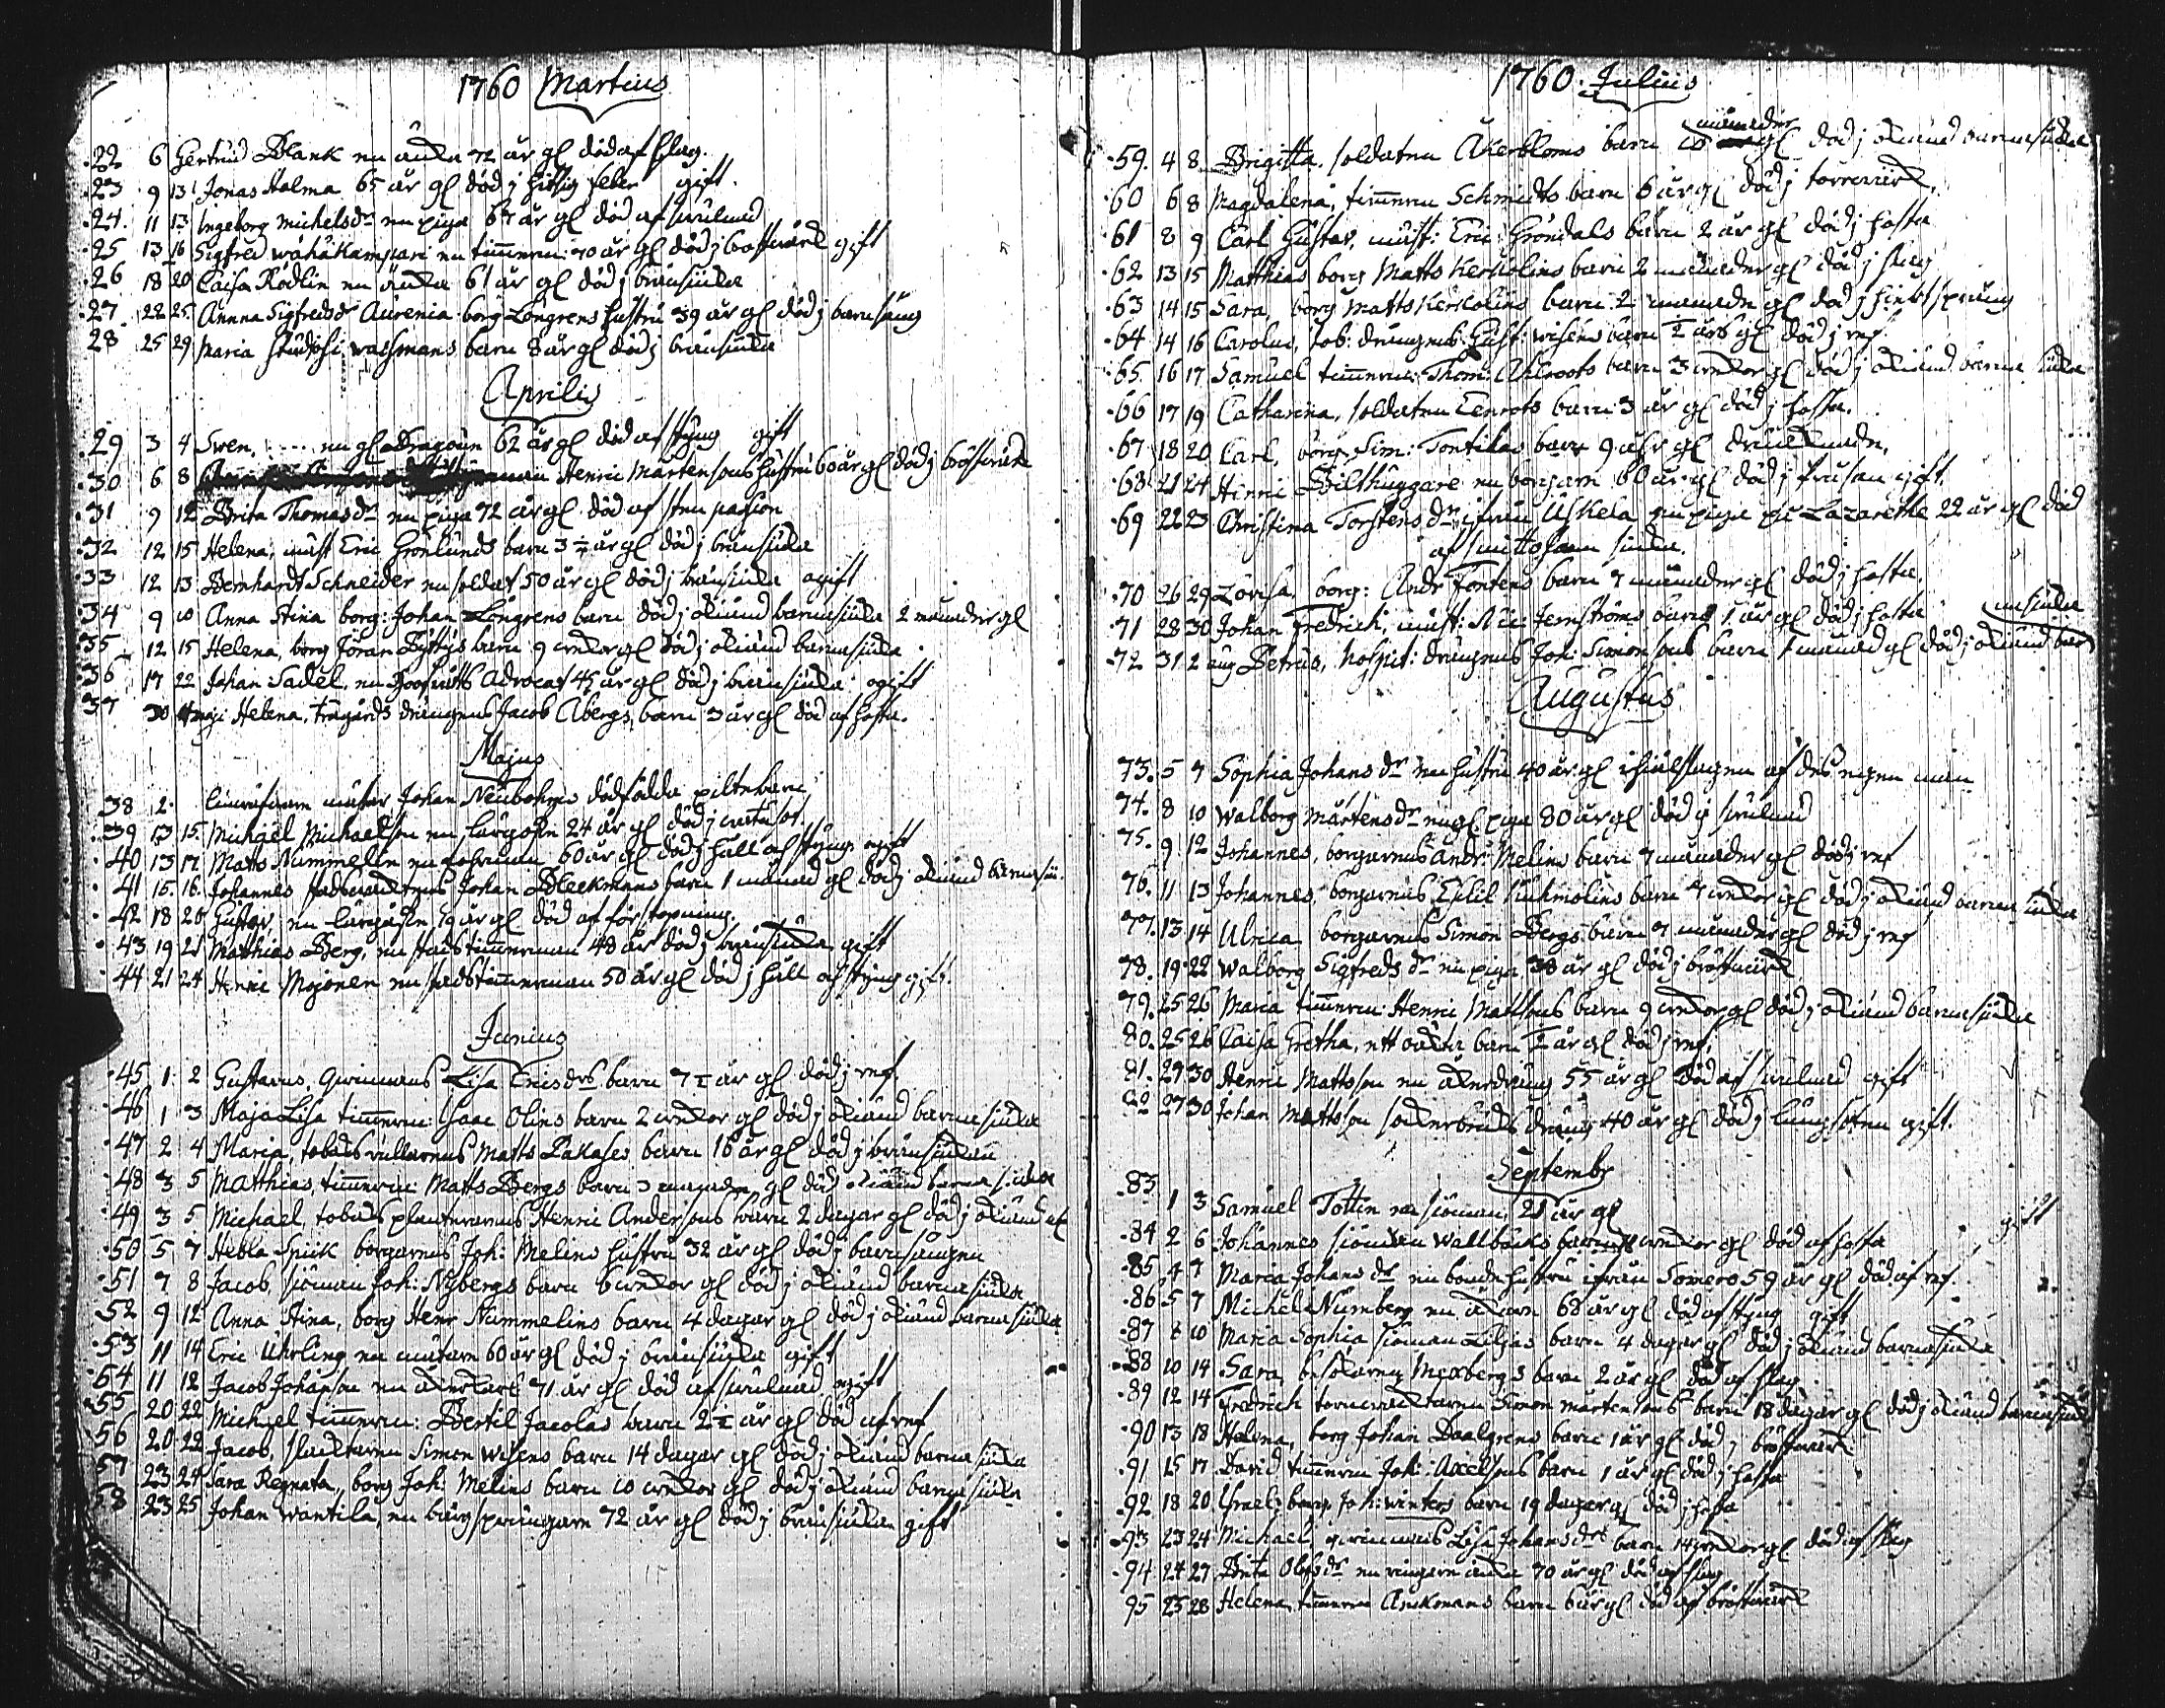 1760 Martius
22 6 Gertrud Blank en änka 72 år gl död af slag.
23 9 13 Jonas Halma 65 år gl död j hitsig feber gift.
24. 11 13 Ingeborg Michelsdr en piga 67 år gl död af
25 13 16 Sigfred wähäkampari en timmerm: 70 år gl död j bröstwärk gift
26 18 20 Caisa Rödlin en änka 61 år gl död j bränsiuka
27 22 25 Annna Sigfredsdr Aurenia borg Löngrens hustru 39 år gl död j barnsäng
28 25 29 Maria wassmans barn 8 år gl död j bränsiuka
Aprilis
29 3 4 Swen, .... en gl Dragoun 62 år gl död af styng gift
30 6 8 Henric Mårtensons hustru 60 år gl död j bröstwärk
31 9 12 Brita Thomasdr en piga 72 år gl död af sten passion
32 12 15 Helena, Eric Grönlunds barn 3 1/2 år gl död j bränsiuka
33 12 13 Bernhardt Schneider en soldat 50 år gl död j bränsiuka ogift
34 9 10 Anna Stina borg: Johan Löngrens barn död j okiänd barnasiuka 2 månader gl
35 12 15 Helena, borg Jöran barn 9 weckor gl död j okiänd barnasiuka
36 17 22 Johan Sadel, en Hoofrätts Advocat 45 år gl död j bränsiuka ogift
37 30 4 maji Helena, trägårds drängens Jacob Abergs barn 3 år gl död af hosta.
Majus
38 2. Johan Neübohms dödfödda piltebarn
39 13 15. Michael Michaelson en 24 år gl död j
40 13 17 Matts Nummelin en 60 år gl död j håll och styng ogift
41 15. 16. Johannes Johan Bleekmans barn 1 månad gl död j okiänd barnasiu.
42 18 20 Gustav, en 19 år gl död af förstopning.
43 19 21 Matthias Berg, en stads timmerman 48 år död j bränsiuka gift
44 21 24 Henric Mojonen en stads timmerman 50 år gl död j håll och styng gift.
Junius
45 1. 2 Gustavus, qwinnans Lisa Ericsdrs barn 7 1/2 år gl död j ref
46 1 3 Maja Lisa timmerm: Isaac Olins barn 2 weckor gl död j okiänd barnasiuka
47 2 4 Maria, tobaks Matts barn 16 år gl död j bränsiukan
48 3 5 Matthias, timmerm: Matts Bergs barn 3 månader gl död okiänd barnasiuka
49 3 5 Michael, tobaks planterarens Henric Andersons barn 2 dagar gl död j okiänd
50 5 7 Hebla Spiik borgarens Joh: Melins hustru 32 år gl död j barnsängen
51 7 8 Jacob, siöman Joh: Nybergs barn 6 weckor gl död j okiänd barnasiuka
52 9 12 Anna Stina, borg Henr Nummelins barn 4 dagar gl död j okiänd barnasiuka
53 11 14 Eric Uhrling en 60 år gl död j bränsiuka gift
54 11 12 Jacob Johanson en 71 år gl död af ogift
55 20 22 Michael timmerm: Bertil Jacolas barn 2 1/2 år gl död af ref
56 20 22 Jacob, slacktaren Simon Wisens barn 14 dagar gl död j okiänd barnasiuka
57 23 24 Sara Regnata, borg Joh: Melins barn 10 weckor gl död j okiänd barnasiuka
58 23 25 Johan Wantila, en 72 år gl död j bränsiukan gift
1760. Julius
månader
59. 4 8 Brigitta. soldaten Åkerbloms barn 10 gl död j okiänd barnasiuka
60 6 8 Magdalena, timmerm Schmidts barn 6 år gl död j torrwärk.
61 8 9 Carl Gustav, Eric Gröndals barn 2 år gl död j hosta
62 13 15 Matthias borg Matts Kerkolins barn 2 månader gl död j slag
63 14 15 Sara, borg Matts Kerkolins barn 2 månader gl död j
64 14 16 Carolus, tob: drängens Gust: wisens barn 1/2 års gl död j ref
65. 16 17 Samuel timmerm: Thom: Ahlroots barn 3 weckor gl död j okiänd barnasiuka
66 17 19 Catharina, soldaten Tenrots barn 3 år gl död j hosta.
67 18 20 Carl, borg. Sim: Tontikas barn 9 år gl
68 21 24 Hinric Bilthuggare en borgare 60 år gl död j gift.
69 22 23 Christina Torstens dr ifrån Uskela en piga på Lazarethe 22 år gl död
af smittosam siuka.
70 26 29 Lovisa, borg: Andr Fontens barn 7 månader gl död j hosta.
71 28 30 Johan Fredrich, Nic: Jernströms barn 1 år gl död j hosta
72 31 2 aug Petrus, hospit: drängens Joh: Simonsons barn 1 månad gl död j okiänd bar
nasiuka
Augustus
73. 5 7 Sophia Johans dr en hustru 40 år gl ihiälslagen af des egen man
74. 8 10 Walborg Mårtens dr en gl piga 80 år gl död j
75. 9 12 Johannes, borgarens Andr: Melins barn 7 månader gl död j ref
76. 11 13 Johannes, borgarens barn 7 weckor gl död j okiänd barnasiuka
77. 13 14 Ulrica borgarens Simon Bergs barn 7 månader gl död j ref
78. 19 22 Walborg Sigfreds dr en piga 38 år gl död j bröstwärk
79. 25 26 Maria timmerm: Henric Mattsons barn 9 weckor gl död j okiänd barnasiuka
80. 25 26 Caisa Gretha, ett oäkta barn 1/2 år gl död j ref.
81. 27 30 Henric Mattsson en åkerdräng 55 år gl död af gift
82 27 30 Johan Mattsson dräng 40 år gl död j lungsoten gift.
Septembr
83 1 3 Samuel Tottin en siöman, 21 år gl gift
84 2 6 Johannes siöman Wallbäcks barn weckor gl död af hosta
85 4 7 Maria Johans dr en bonde hustru ifrån Somero 59 år gl död af ref
86 5 7 Michel Nürnberg en åkare 68 år gl död af styng gift
87 10 Maria Sophia siöman Liljas barn 4 dagar gl död j okiänd barnasiuka
88 10 14 Sara, Mexbergs barn 2 år gl död af slag
89 12 14 Fredrich tornwäcktaren Simon Mårtensons barn 18 dagar gl död j okiänd barnasiuk
90 13 18 Helena, borg Johan Daalgrens barn 1 år gl död j bröstwärk
91 15 17 David timmerm Joh: Axelsons barn 1 år gl död j hosta
92 18 20 borg. Joh: winters barn 19 dagar gl död j hosta
93 23 24 Michael, qwinnans Lisa Johans drs barn 14 weckor gl död af slag
94 24 27 Brita Olofs dr en änka 70 år gl död af slag
95 25 28 Helena, timmerm Anckmans barn 6 år gl död af bröstwärk